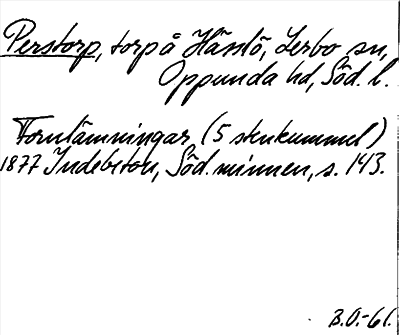 Perstorp, torp å Hässlö, Lerbo sn,
Oppunda hd, Söd. l.
Fornlämningar (5 stenkummel)
1877 Indebetou, Söd. minnen, s. 143.
B.O.-61.